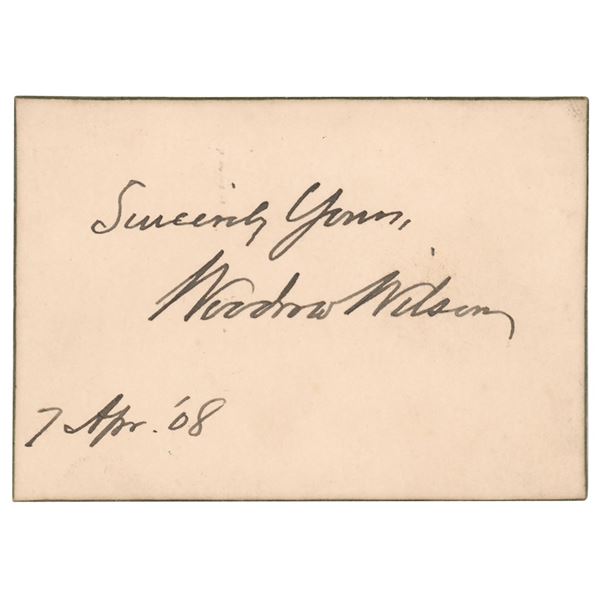 Sincerely Yours,
Woodrow Wilson
7 Apr. '08